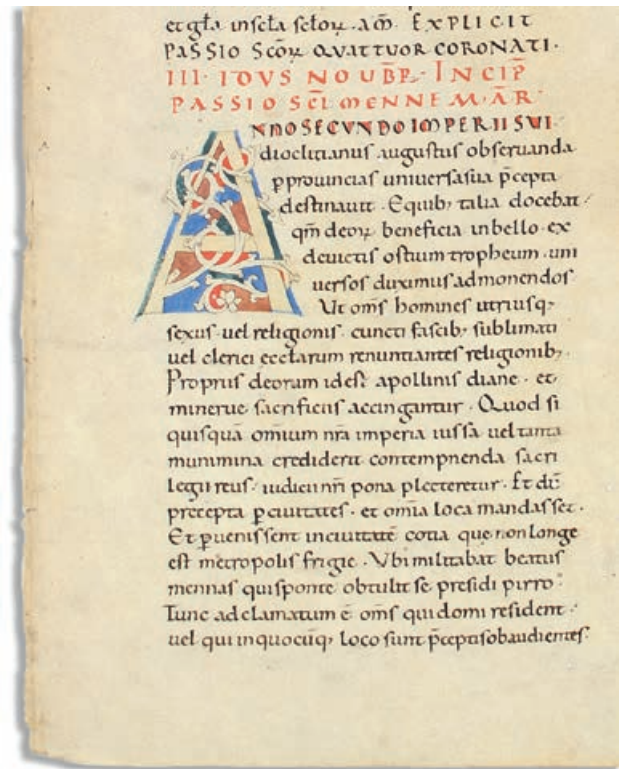 et gl̄a in scl̄a sclor̄. am̄. EXPLICIT
PASSIO SC̄OR̄ QVATTVOR CORONATI·
III· IDVS NOVB̄R̄· INCIP̄
PASSIO SC̄I MENNE M·ĀR
ANNO SECVNDO IMPERII SVI·
dioclitianus augustus obseruanda
p̄ prouincias uniuersa sua p̄cepta
destinauit· E quib; talia docebat·
qm̄ deor̄ beneficia in bello· ex
deuictis ostium tropheum· uni
uersos duximus admonendos·
Ut om̄s homines utriusq;
sexus· uel religionis· cuncti fascib; sublimati
uel clerici eccl̄arum renuntiantes religionib;·
Propriis deorum idest apollinis diane· et
minerue sacrificiis accingantur· Quod si
quisquā omnium nr̄a imperia iussa uel tanta
munimina crediderit contempnenda sacri
legii reus· iudicii nr̄i pona plecteretur· Et dū
precepta p̄ ciuitates· et om̄ia loca mandasset·
Et p̄uenissent in ciuitatē cotia que non longe
est metropolis frigie· Vbi militabat beatus
mennas qui sponte obtulit se presidi pirro·
Tunc adclamatum ē om̄s qui domi resident·
uel qui in quocūq; loco sunt p̄ceptis obaudientes·